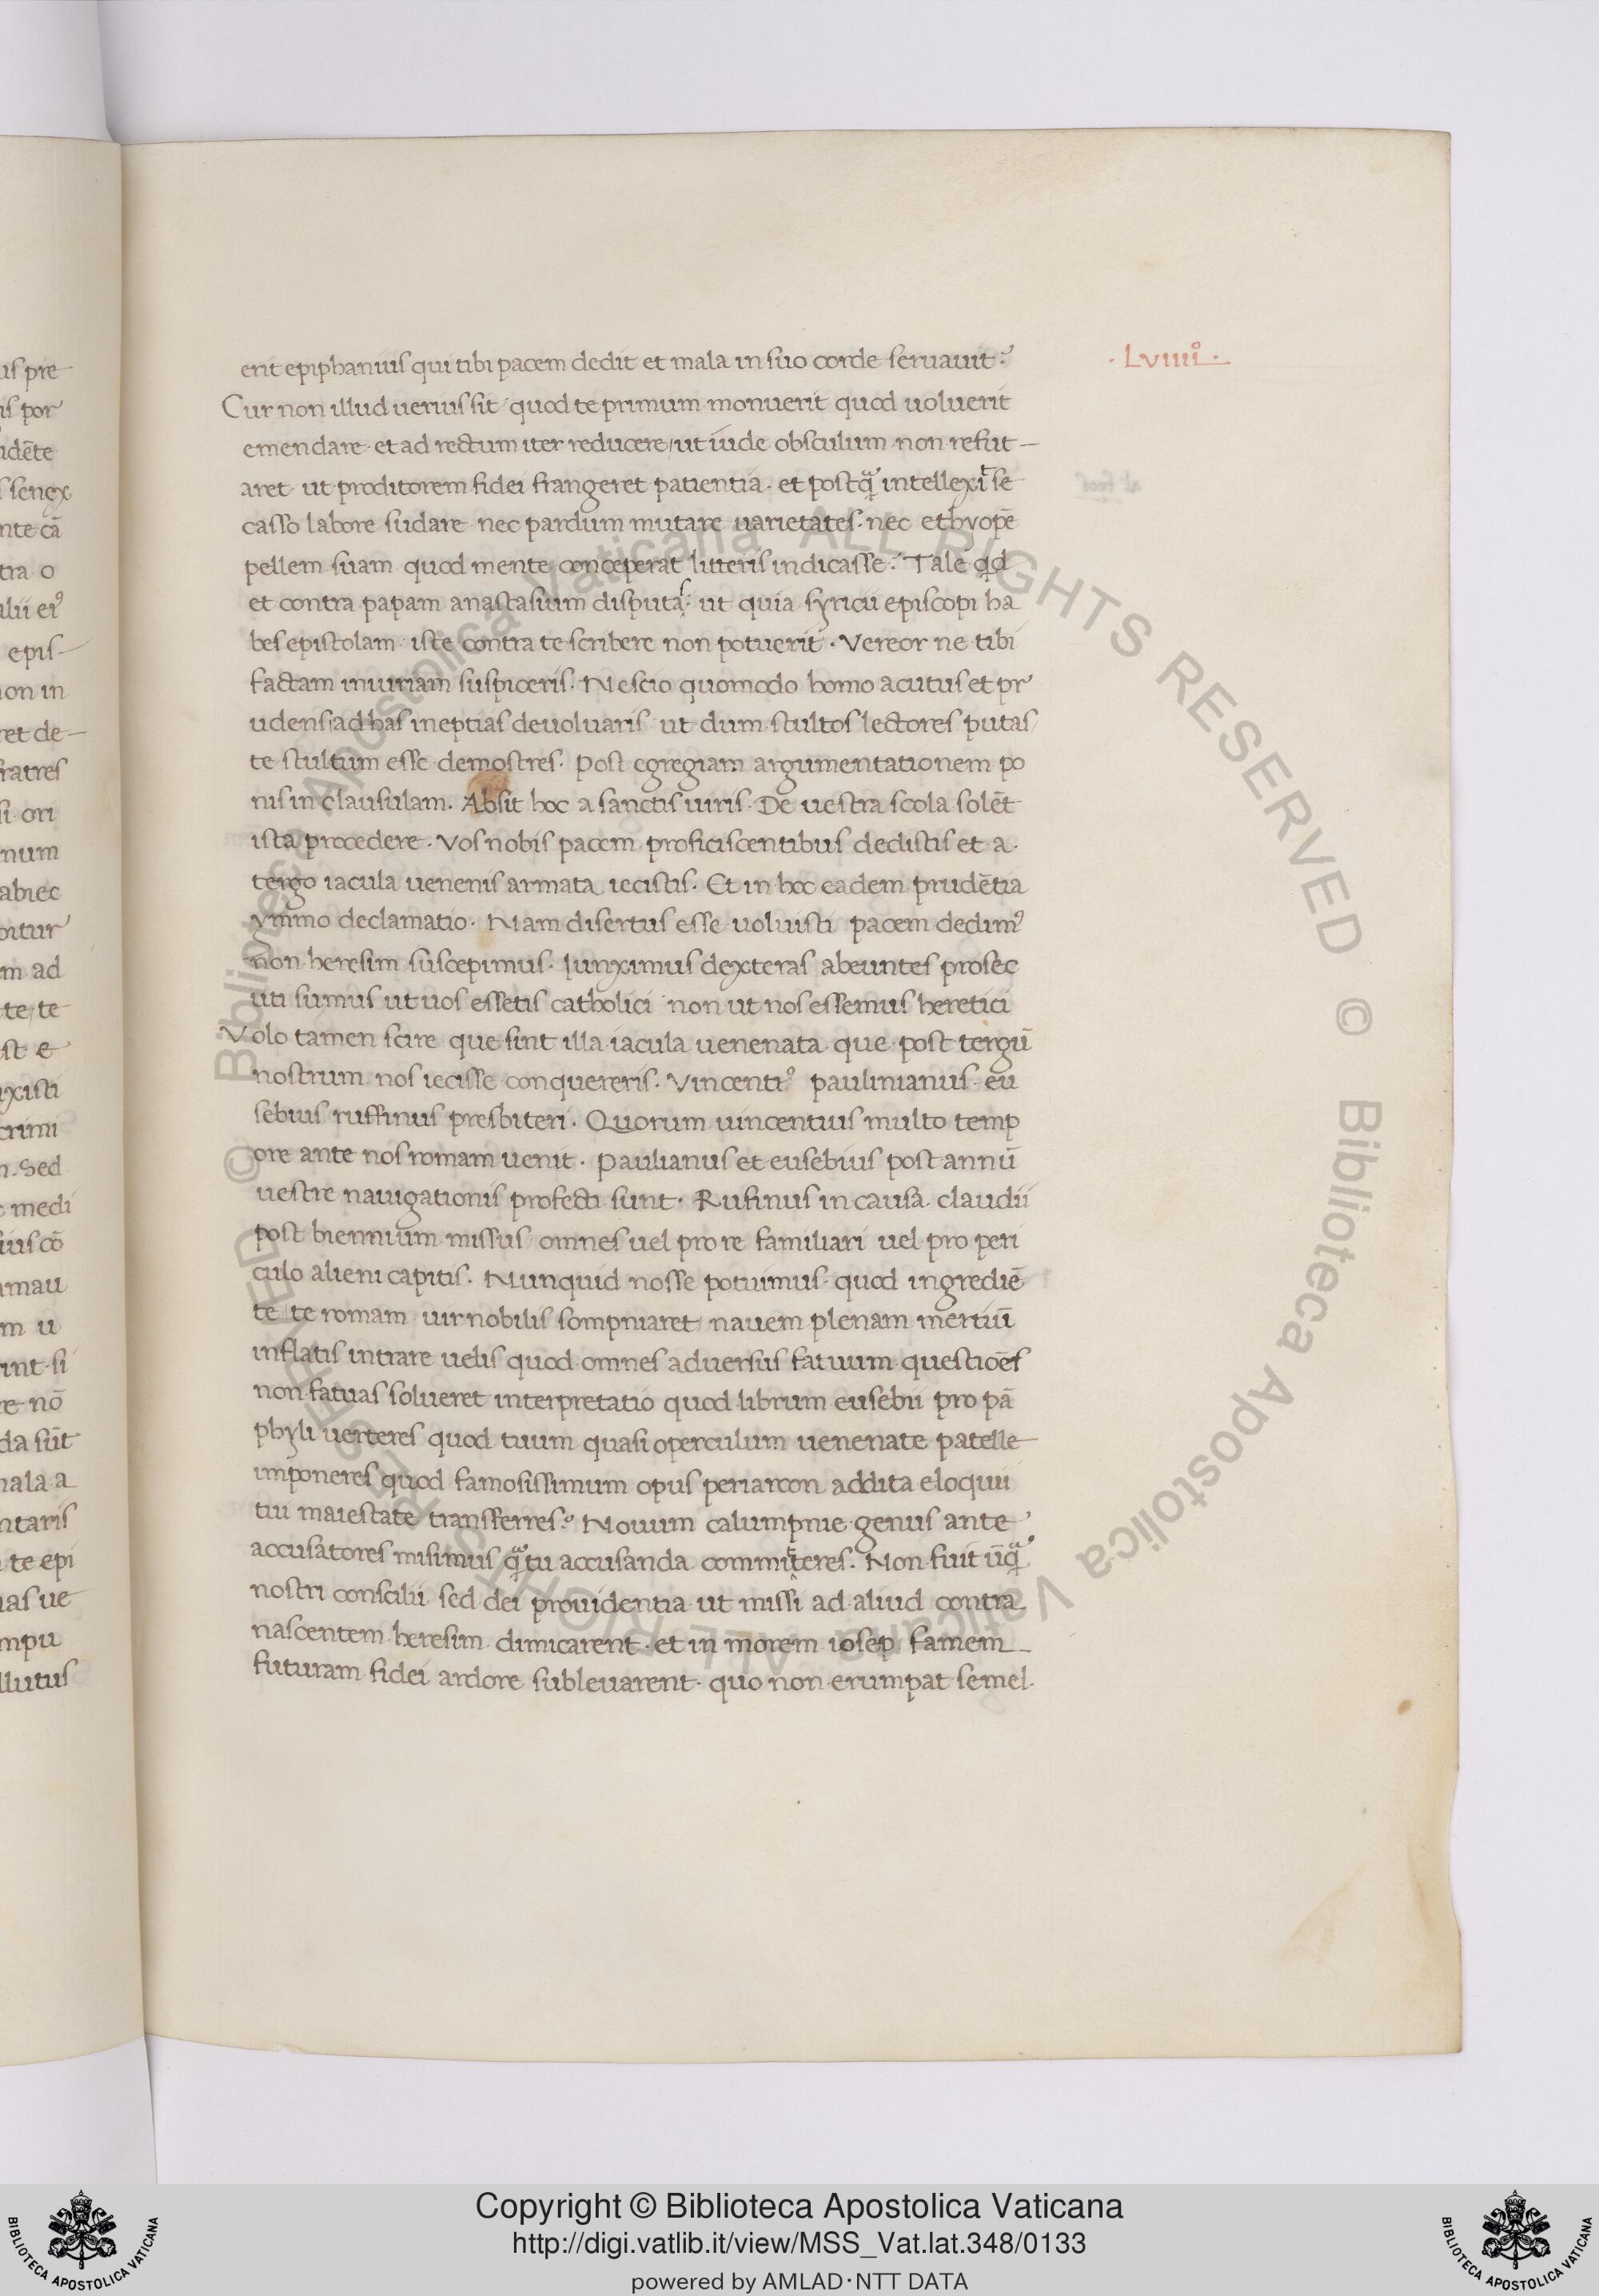 ·Lviiii°·
erit epiphanius qui tibi pacem dedit et mala in suo corde seruauit?
Cur non illud uerius sit quod te primum monuerit quod uoluerit
emendare et ad rectum iter reducere, ut iude obsculum non refut-
aret ut proditorem fidei frangeret patientia. et postqᷓ intellexit se
casso labore sudare nec pardum mutare uarietates. nec ethyopē
pellem suam quod mente conceperat litteris indicasse? Tale qd
et contra papam anastasium disputas: ut quia syricii episcopi ha
bes epistolam iste contra te scribere non potuerit. Vereor ne tibi
factam iniuriam suspiceris. Nescio quomodo homo acutus et pr
udens ad has ineptias deuoluaris ut dum stultos lectores putas
te stultum esse demostres. Post egregiam argumentationem po
nis in clausulam. Absit hoc a sanctis uiris. De uestra scola solēt
ista procedere. Vos nobis pacem proficiscentibus dedistis et a.
tergo iacula uenenis armata iecistis. Et in hoc eadem prudētia
ymmo declamatio. Nam disertus esse uoluisti pacem dedimꝰ
non heresim suscepimus. Junximus dexteras abeuntes prosec
uti sumus ut uos essetis catholici non ut nos essemus heretici
Volo tamen scire que sint illa iacula uenenata que post tergū
nostrum nos iecisse conquereris. Vincentiꝰ paulinianus eu
sebius ruffinus presbiteri. Quorum uincentius multo temp
ore ante nos romam uenit. Paulianus et eusebius post annū
uestre nauigationis profecti sunt. Rufinus in causa claudii
post biennium missus omnes uel pro re familiari uel pro peri
culo alieni capitis. Nunquid nosse potuimus quod ingrediē
te te romam uir nobilis sompniaret nauem plenam mertiuī
inflatis intrare uelis quod omnes aduersus fatuum questiōes
non fatuas solueret interpretatio quod librum eusebii pro pā
phyli uerteres quod tuum quasi operculum uenenate patelle
imponeres quod famosissimum opus periarcon addita eloquii
tui maiestate transferres? Nouum calumpnie genus ante
accusatores misimus qᷓ tu accusanda committeres. Non fuit ūqᷓ
nostri conscilii sed dei prouidentia ut missi ad aliud contra
nascentem heresim dimicarent. et in morem iosep famem
futuram fidei ardore subleuarent. quo non erumpat semel.
us pre
is por
idēte
senex
nte cā
tra o
alii eiꝰ
epis-
on in
ret de-
fratres
si ori
num
abiec
bitur
m ad
te te
st e
xisti
crimi
n. Sed
medi
ius cō
mau
m u
int si
re nō
da sūt
mala a
ntaris
te epi
as ue
mpu
llutus
© Biblioteca Apostolica Vaticana ALL RIGHTS RESERVED © Biblioteca Apostolica Vaticana ALL RIGHTS RESERVED
Copyright © Biblioteca Apostolica Vaticana
http://digi.vatlib.it/view/MSS_Vat.lat.348/0133
powered by AMLAD·NTT DATA
BIBLIOTECA APOSTOLICA VATICANA
BIBLIOTECA APOSTOLICA VATICANA